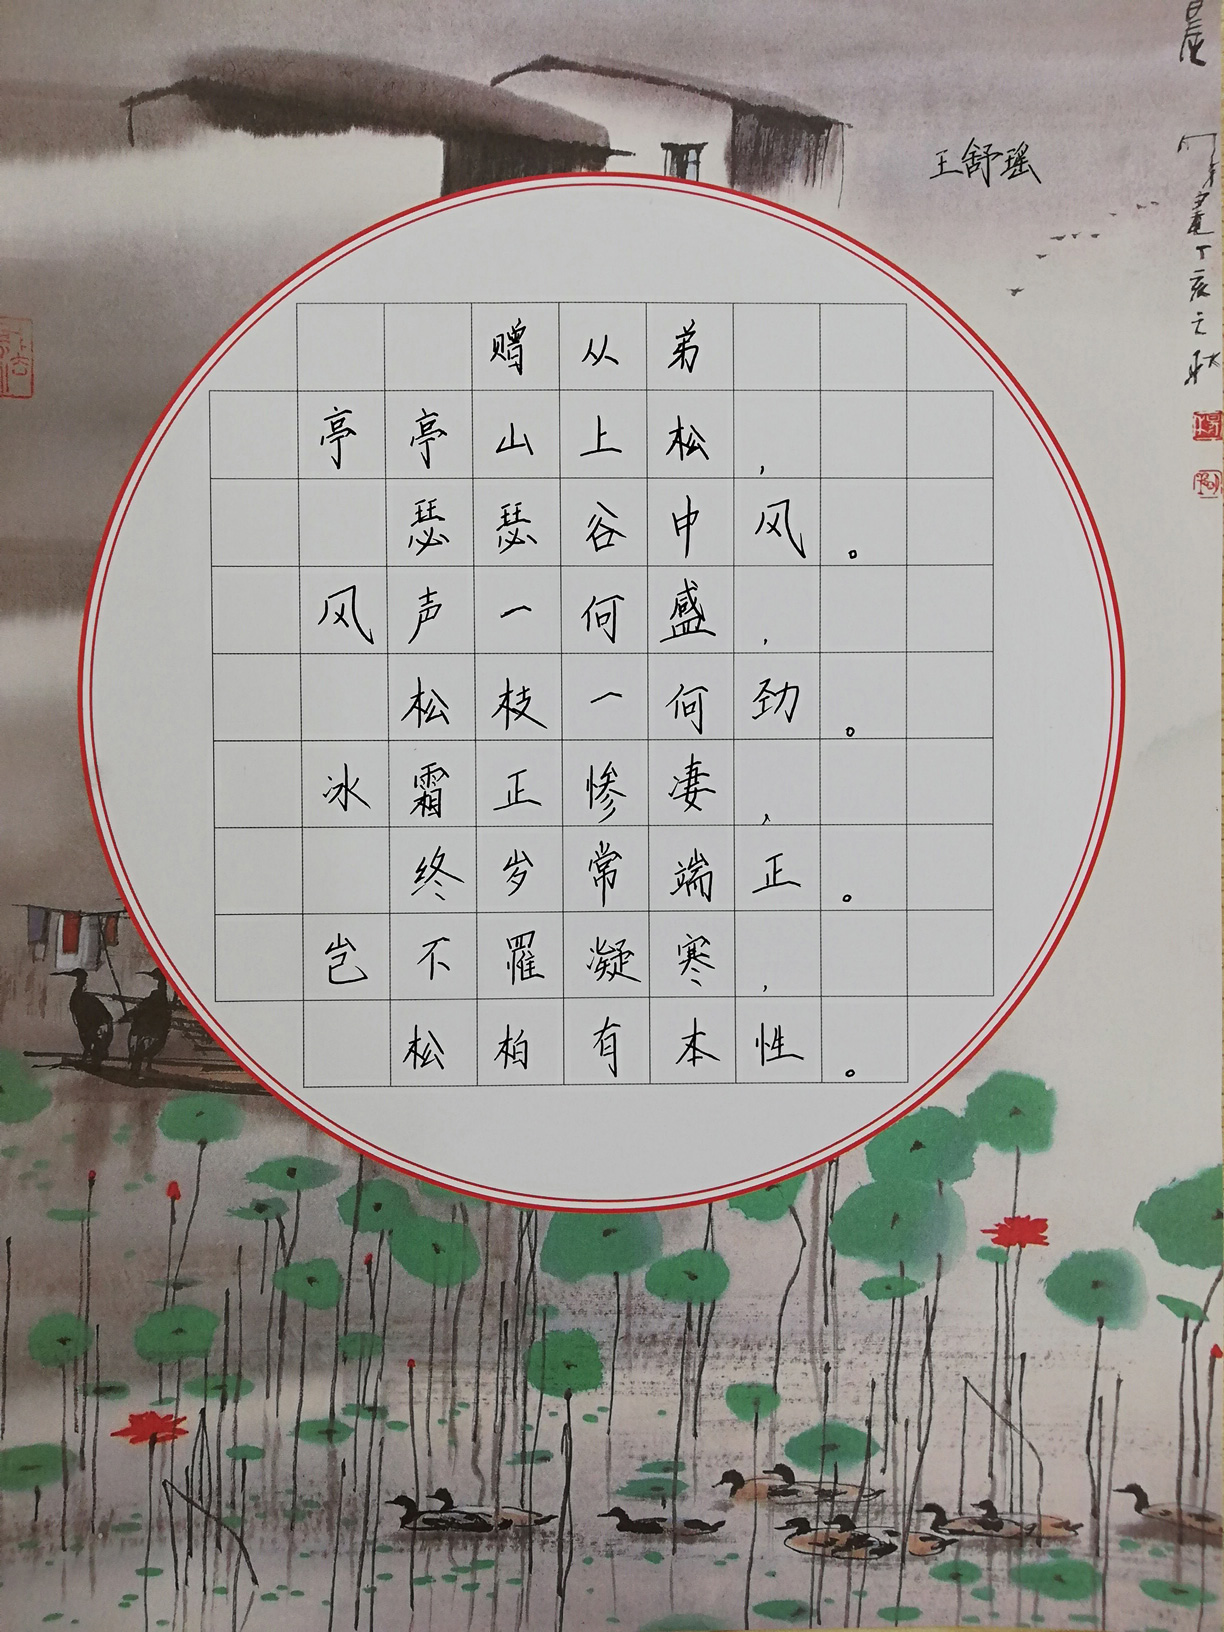 王舒瑶
赠从弟
亭亭山上松，
瑟瑟谷中风。
风声一何盛，
松枝一何劲。
冰霜正惨凄，
终岁常端正。
岂不罹凝寒，
松柏有本性。
晨
画丁亥之秋